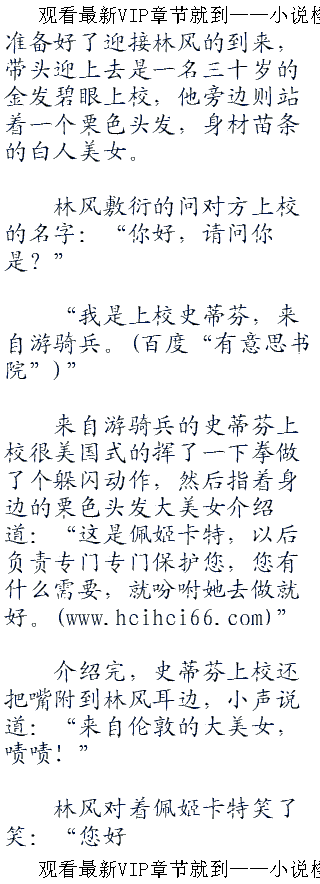 观看最新VIP章节就到——小说
准备好了迎接林风的到来，
带头迎上去是一名三十岁的
金发碧眼上校，他旁边则站
着一个栗色头发，身材苗条
的白人美女。
林风敷衍的问对方上校
的名字：“你好，请问你
是？”
“我是上校史蒂芬，来
自游骑兵。(百度“有意思书
院”)”
来自游骑兵的史蒂芬上
校很美国式的挥了一下拳做
了个躲闪动作，然后指着身
边的栗色头发大美女介绍
道：“这是佩姬卡特，以后
负责专门专门保护您，您有
什么需要，就吩咐她去做就
好。(www.hcihci66.com)”
介绍完，史蒂芬上校还
把嘴附到林风耳边，小声说
道：“来自伦敦的大美女，
啧啧！”
林风对着佩姬卡特笑了
笑：“您好
观看最新VIP章节就到——小说